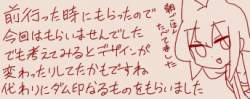 前行った時にもらったので
今回はもらいませんでした
でも考えてみるとデザインが
変わったりしてたかもですね
代わりにダム印なるものをもらいました
朝ごはん
たべてました